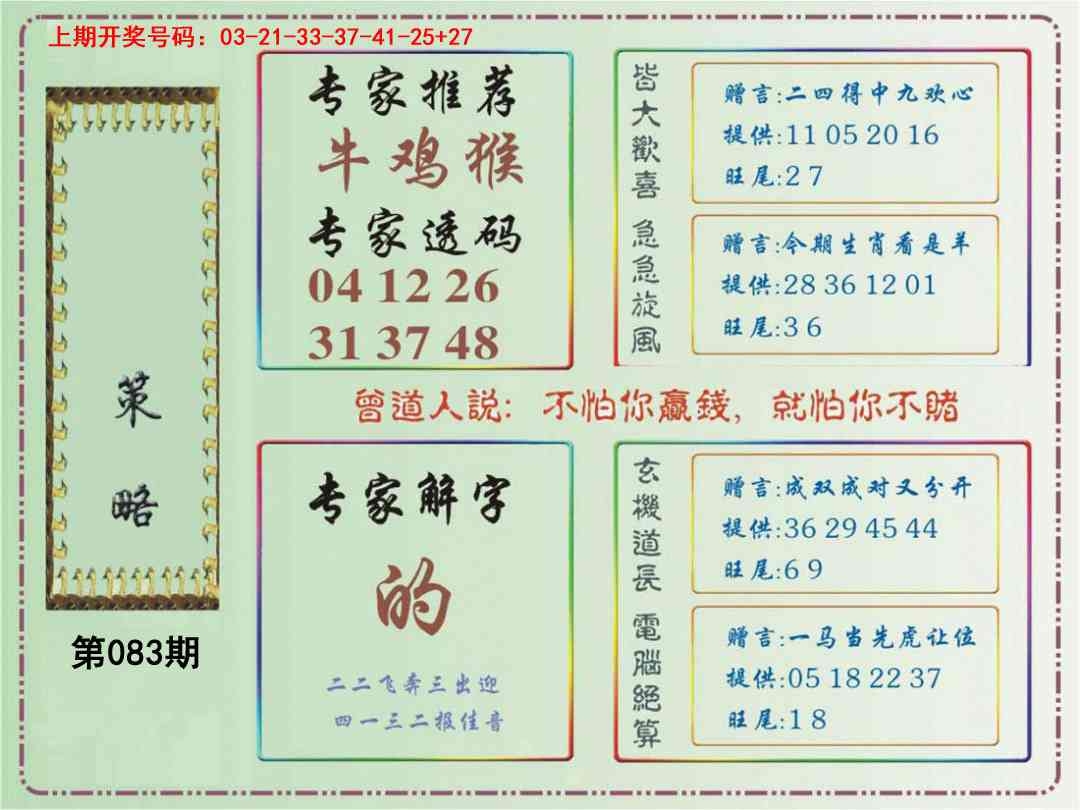 上期开奖号码：03-21-33-37-41-25+27
策略
第083期
专家推荐
牛鸡猴
专家透码
04 12 26
31 37 48
皆大歡喜
赠言:二四得中九欢心
提供:11 05 20 16
旺尾:2 7
急急旋風
赠言:今期生肖看是羊
提供:28 36 12 01
旺尾:3 6
曾道人説：不怕你赢錢，就怕你不賭
专家解字
的
二二飞奔三出迎
四一三二报佳音
玄機道長
赠言:成双成对又分开
提供:36 29 45 44
旺尾:6 9
電腦絕算
赠言:一马当先虎让位
提供:05 18 22 37
旺尾:1 8